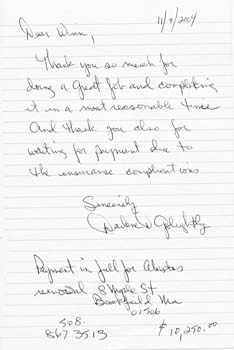 11/9/2004
Dear Winn,
Thank you so much for
doing a great job and completing
it in a most reasonable time
And thank you also for
waiting for payment due to
the insurance complications
Sincerely
Darlene Golightly
Payment in full for Asbestos
removal 8 Maple St
Brookfield Ma
01506
508.
867 3513
$10,250.00